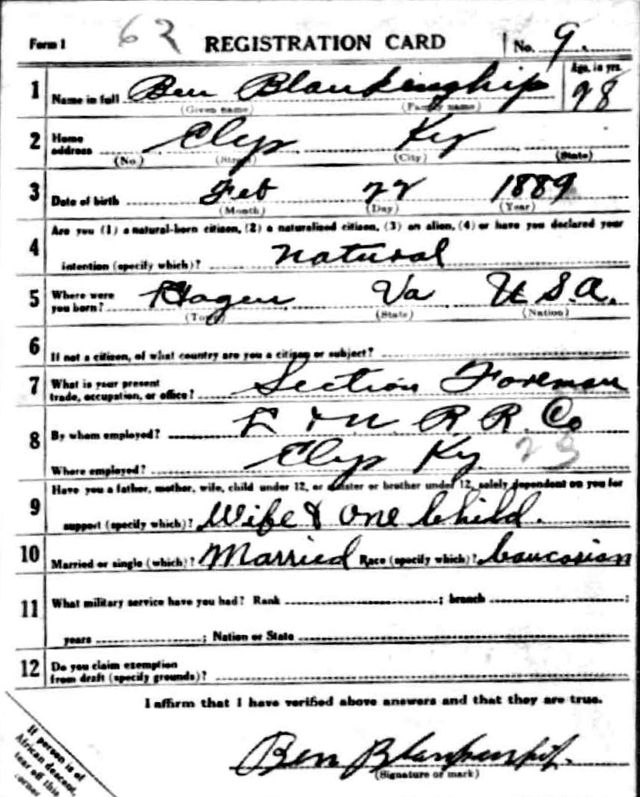 Form 1 63 REGISTRATION CARD No. 9.
1 Name in full Ben Blankenship Age, in yrs. 28
(Given name) (Family name)
2 Home address Clyp Ky
(No.) (Street) (City) (State)
3 Date of birth Feb 22 1889
(Month) (Day) (Year)
Are you (1) a natural-born citizen, (2) a naturalized citizen, (3) an alien, (4) or have you declared your
4 intention (specify which)? natural
5 Where were you born? Hagen Va U.S.A.
(Town) (State) (Nation)
6 If not a citizen, of what country are you a citizen or subject?
7 What is your present trade, occupation, or office? Section Foreman
8 By whom employed? L & N R R Co
Where employed? Clyp Ky 23
9 Have you a father, mother, wife, child under 12, or a sister or brother under 12, solely dependent on you for
support (specify which)? Wife & one Child.
10 Married or single (which)? Married Race (specify which)? Caucasian
11 What military service have you had? Rank ; branch ;
years ; Nation or State
12 Do you claim exemption from draft (specify grounds)?
I affirm that I have verified above answers and that they are true.
Ben Blankenship.
(Signature or mark)
If person is of
African descent,
tear off this
corner